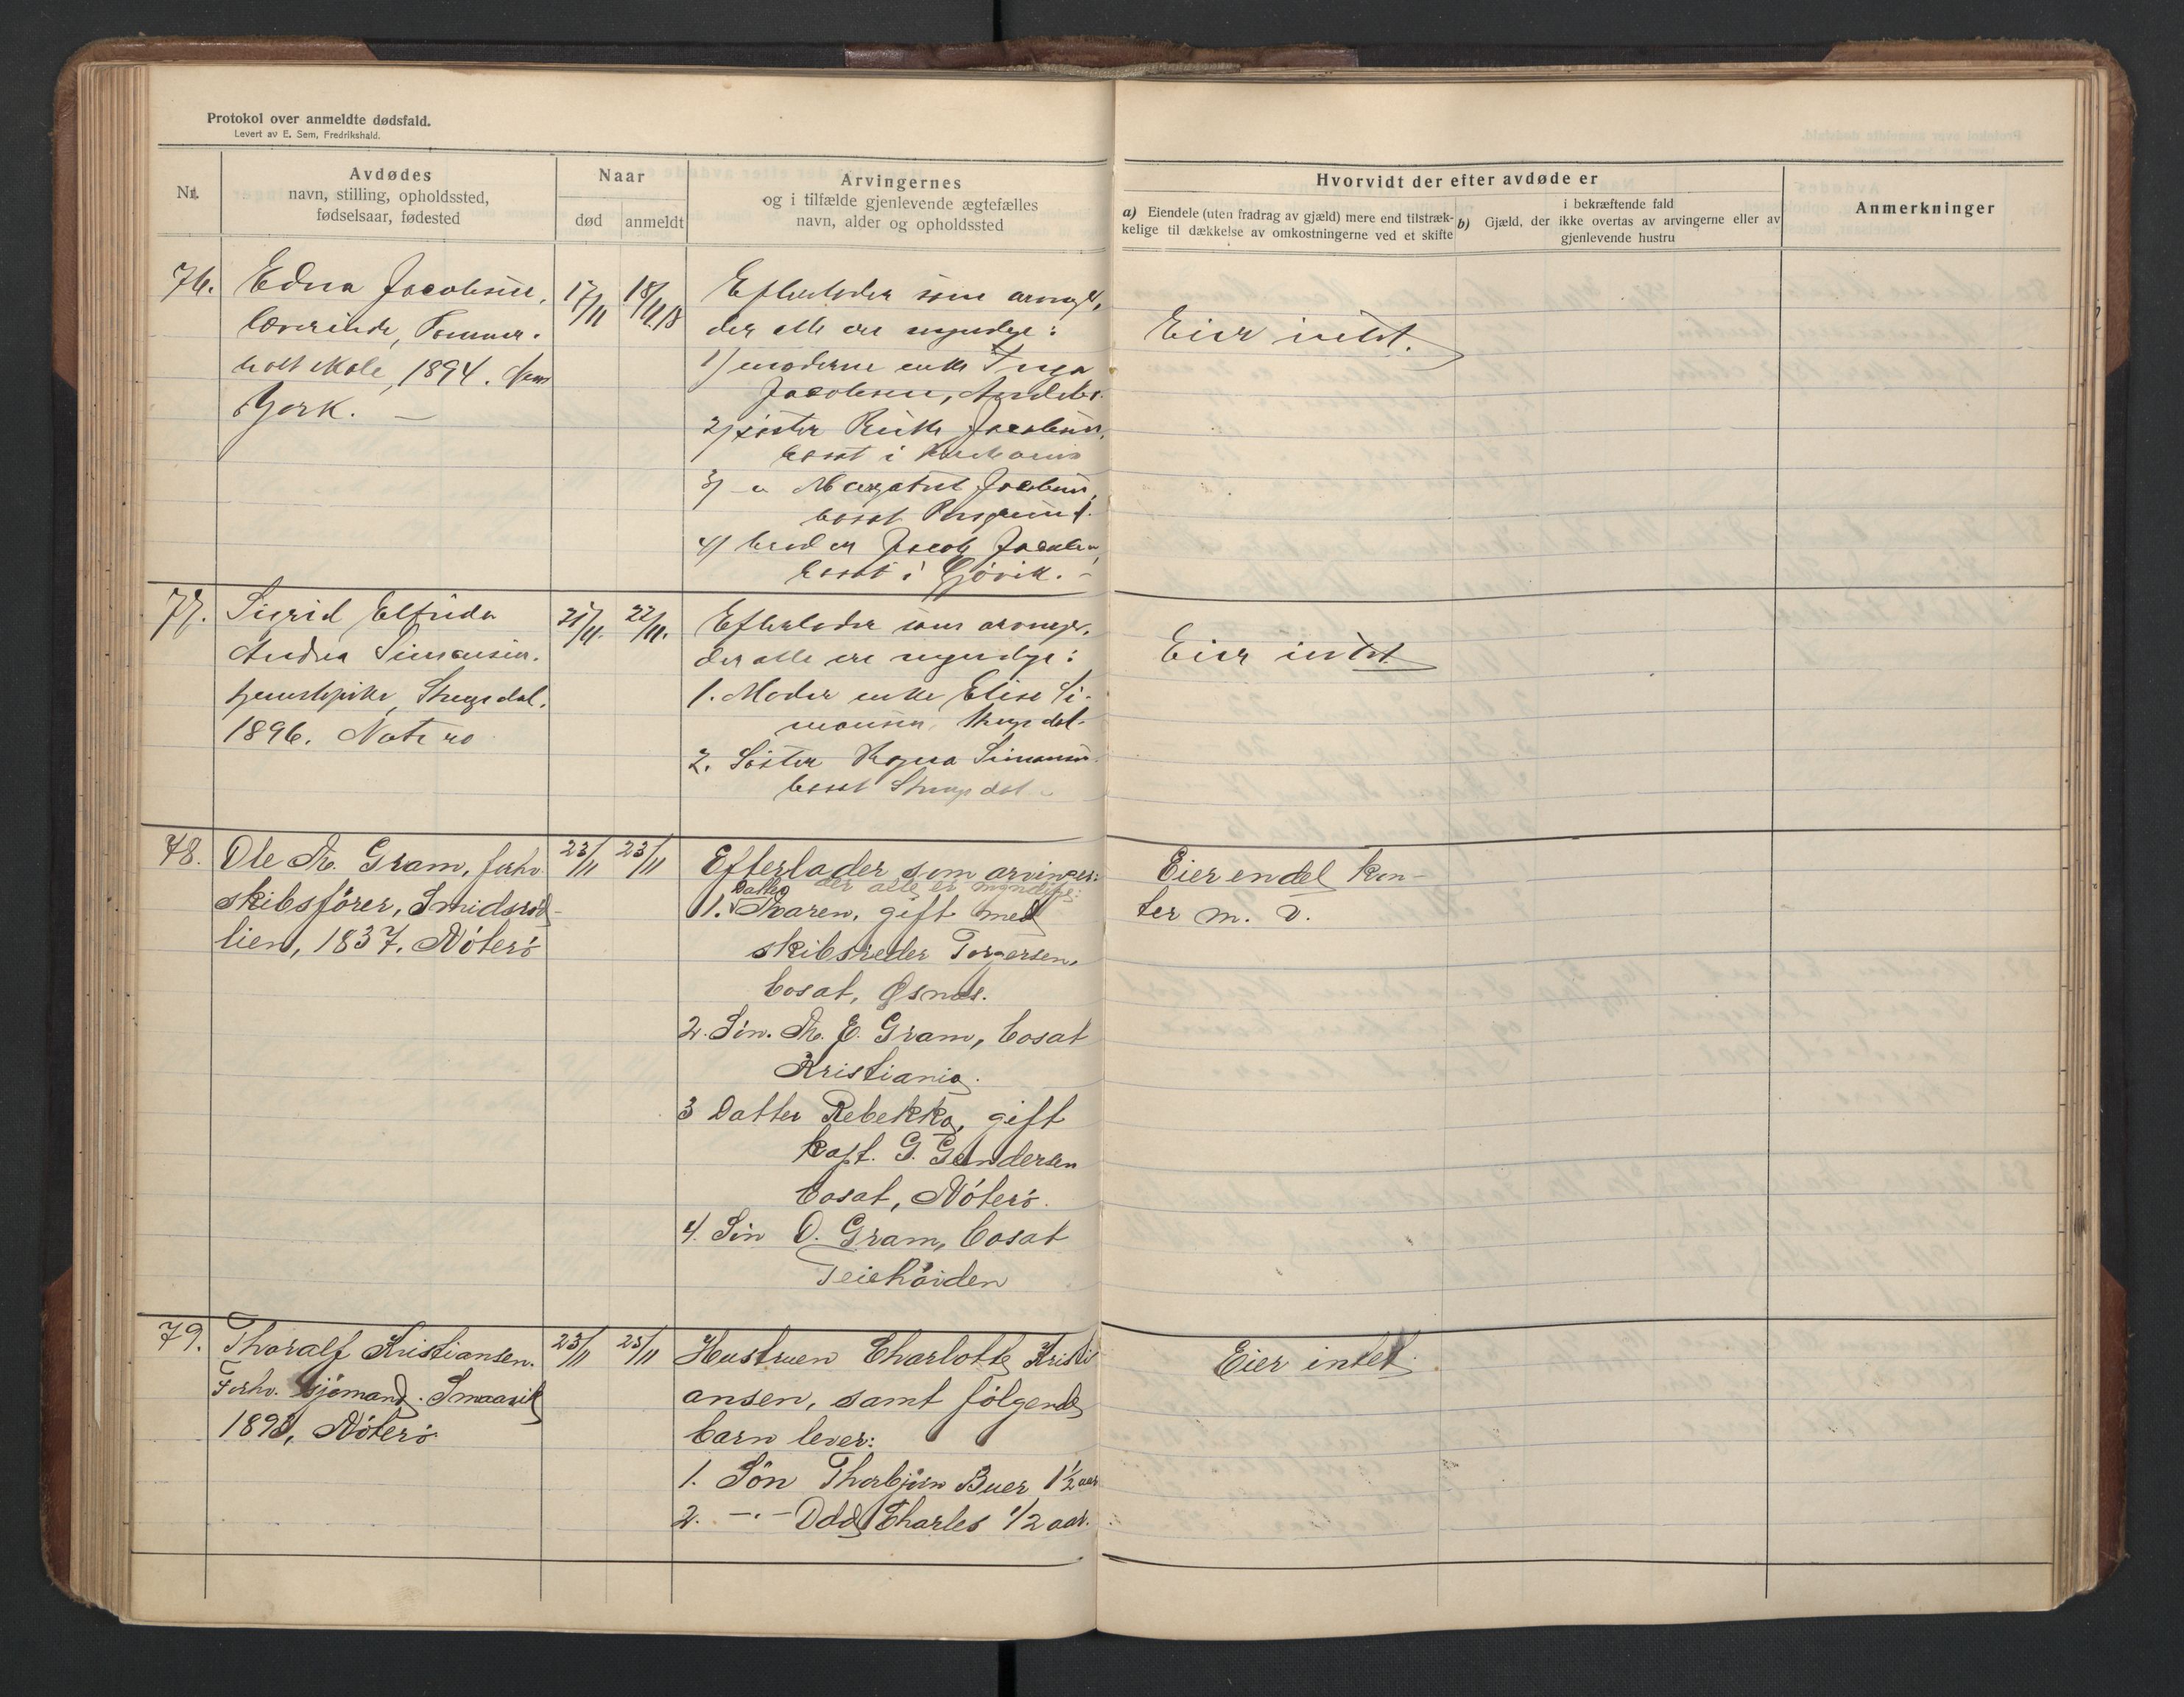 Protokol over anmeldte dødsfald.
Levert av E. Sem, Fredrikshald.
Nr.
Avdødes
navn, stilling, opholdssted,
fødselsaar, fødested
Naar
død
anmeldt
Arvingernes
og i tilfælde gjenlevende ægtefælles
navn, alder og opholdssted
Hvorvidt der efter avdøde er
a) Eiendele (uten fradrag av gjæld) mere end tilstræk-
kelige til dækkelse av omkostningerne ved et skifte
i bekræftende fald
b) Gjæld, der ikke overtas av arvingerne eller av
gjenlevende hustru
Anmerkninger
76.
Edna Jacobsen,
lærerinde,
skole, 1894.
York.
17/11
18/11 18
Efterlader som arvinger,
der alle ere myndige:
1) moderen enke Inga
Jacobsen,
2) søster Ruth Jacobsen,
bosat i
3) -"- Margaret Jacobsen,
bosat Porsgrund.
4) broder Jacob Jacobsen,
bosat i Gjøvik. -
Eier intet.
77.
Sigrid Elfrida
Andrea Simonsen,
tjenestepike,
1896. Nøterø
21/11.
22/11.
Efterlader som arvinger,
der alle ere myndige:
1. Moder enke Elise Si-
monsen,
2. Søster Simonsen
bosat
Eier intet
78.
Ole M. Gram, forhv.
skibsfører, Smidsrød-
lien, 1837. Nøterø
23/11
23/11
Efterlader som arvinger:
der alle er myndige:
Datter
1. Maren, gift med
skibsreder Torgersen,
bosat, Øsnes.
2. Søn. M. E. Gram, bosat
Kristiania.
3 Datter Rebekka, gift
kapt. G. Gundersen
bosat, Nøterø.
4. Søn O. Gram, bosat
Teiehøiden
Eier endel kon-
ter m. v.
79.
Thoralf Kristiansen.
Forhv. sjømand. Smaavik
Nøterø
23/11
25/11
Hustruen Charlotte Kristi
ansen, samt følgende
barn lever:
1. Søn Thorbjørn Buer 1 1/2 aar
2. -"- Odd Charles 1/2 aar.
Eier intet.